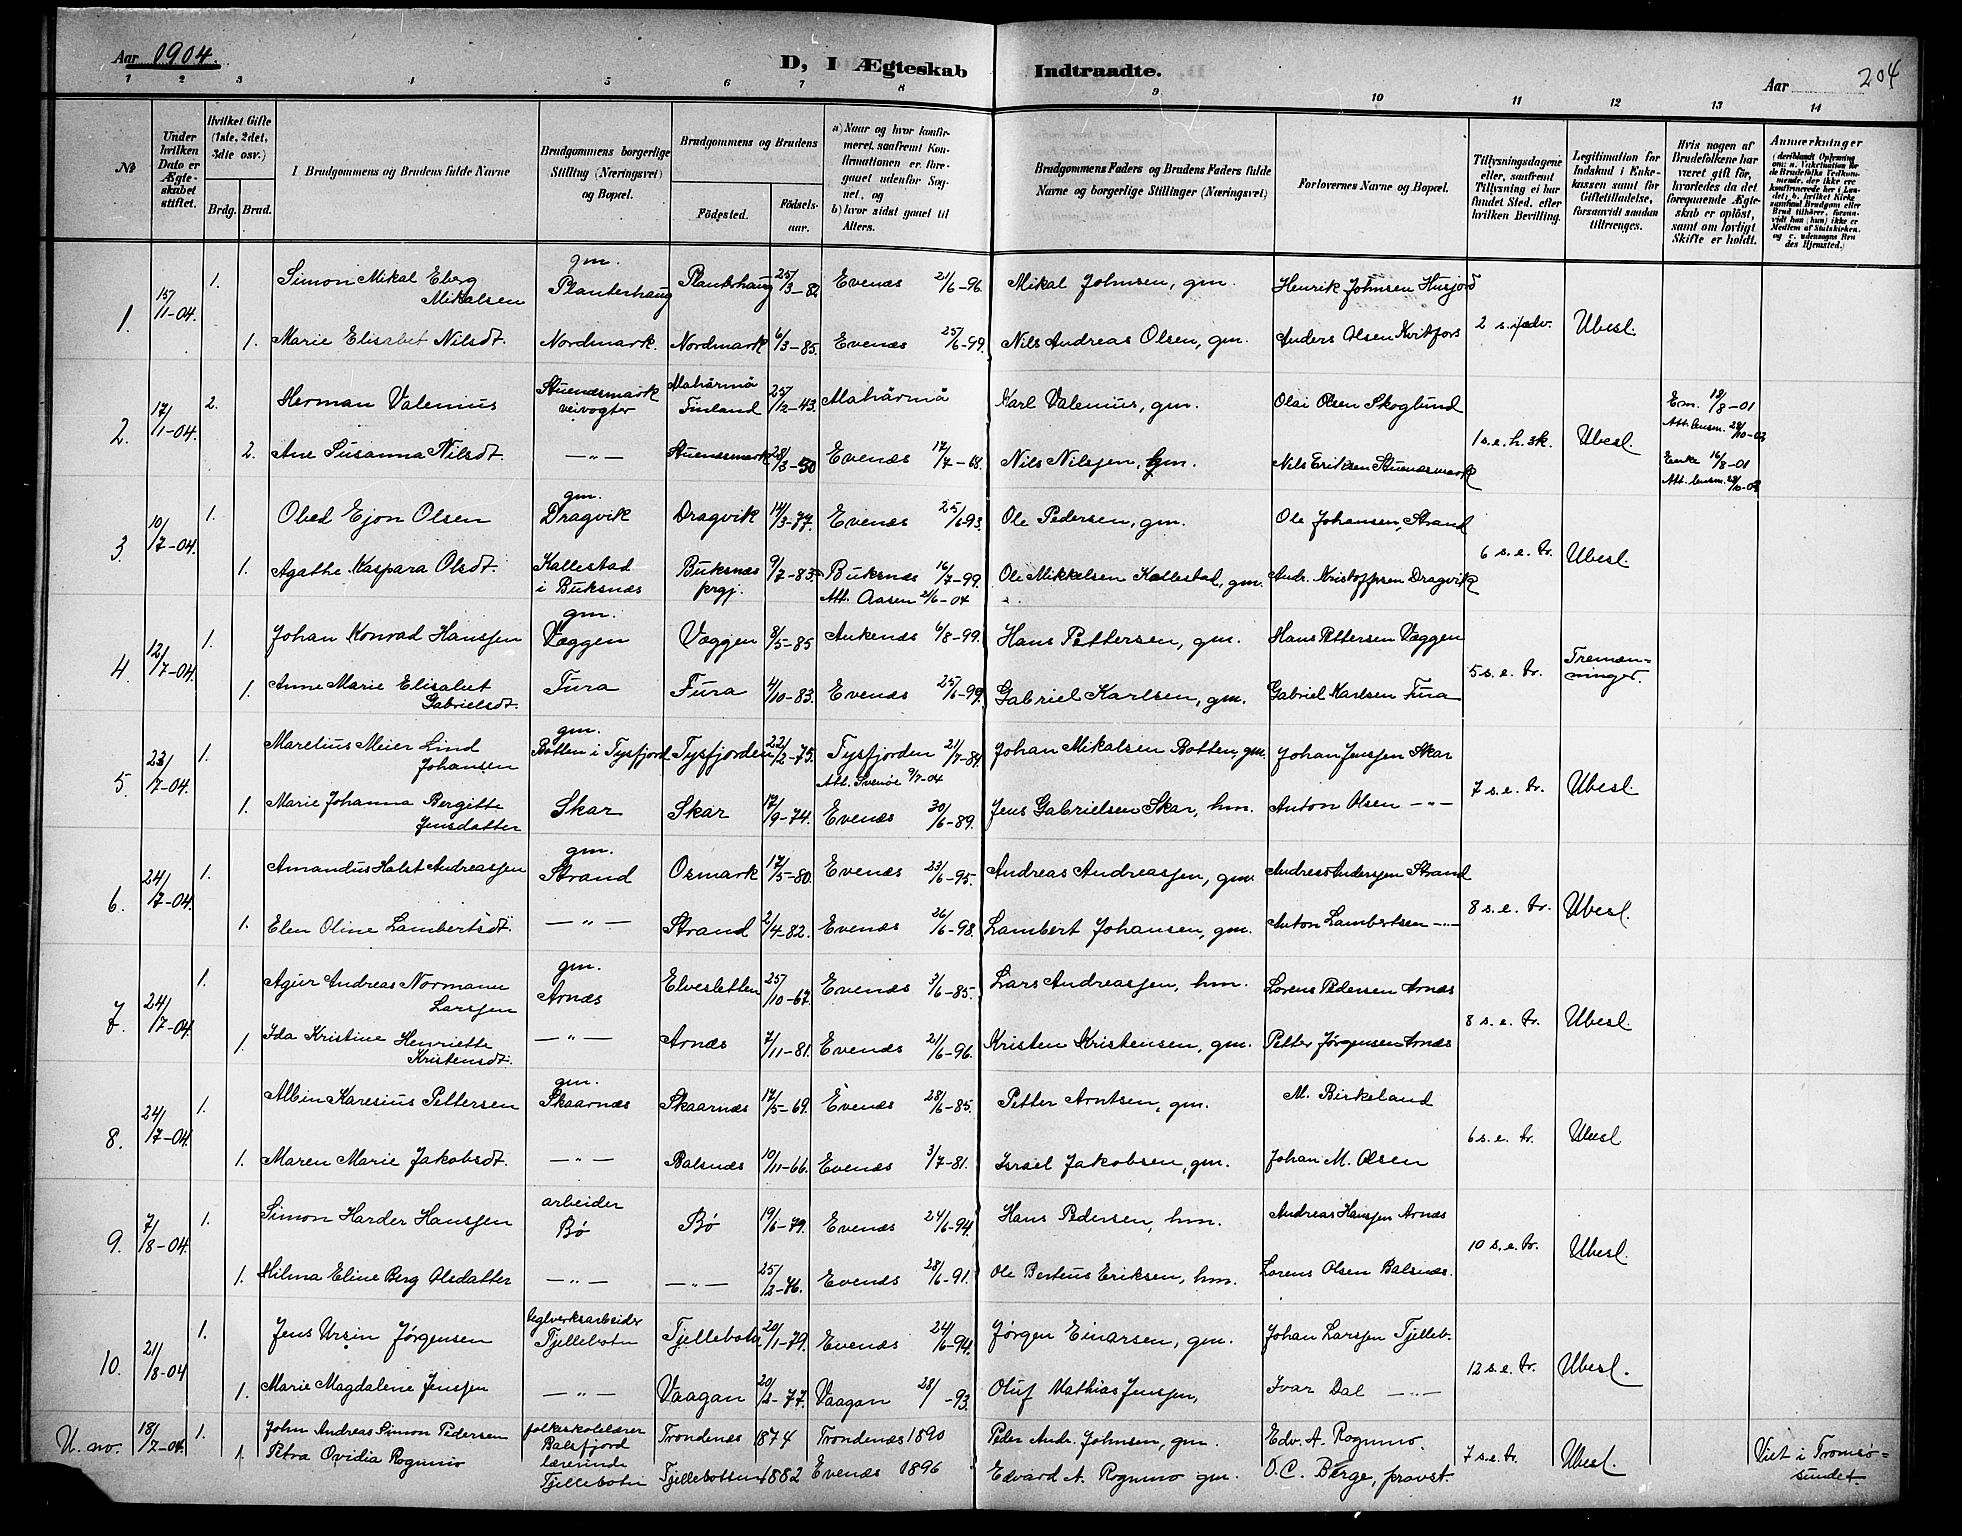 Aar 1904.
D, I Ægteskab Indtraadte.
Aar 204
1 2 3 4 5 6 7 8 9 10 11 12 13 14
№
Under hvilken Dato er Ægteskabet stiftet.
Hvilket Gifte (1ste, 2det, 3die osv.)
Brdg. Brud.
I Brudgommens og Brudens fulde Navne
Brudgommens borgerlige Stilling (Næringsvei) og Bopæl.
Brudgommens og Brudens
Fødested. Fødselsaar.
a) Naar og hvor konfirmeret, saafremt Konfirmationen er foregaaet udenfor Sognet, og
b) hvor sidst gaaet til Alters.
Brudgommens Faders og Brudens Faders fulde Navne og borgerlige Stillinger (Næringsvei)
Forlovernes Navne og Bopæl.
Tillysningsdagene eller, saafremt Tillysning ei har fundet Sted, efter hvilken Bevilling.
Legitimation for Indskud i Enkekassen samt for Giftetilladelse, forsaavidt saadan tiltrænges.
Hvis nogen af Brudefolkene har været gift før, hvorledes da det foregaaende Ægteskab er opløst, samt om lovligt Skifte er holdt.
Anmærkninger
1. 15/1-04. 1. Simon Mikal Eberg Mikalsen gm. Planterhaug Planterhaug 25/3-82 Evenæs 21/6-96 Mikal Johnsen, gm. Henrik Johnsen Husjord
1. Marie Elisabet Nilsdt. Nordmark. Nordmark 6/3-85. Evenæs 25/6-99. Nils Andreas Olsen, gm. Anders Olsen Kvitfors 2 s. i adv. Ubesl.
2. 17/1-04. 2. Herman Valenius Stuenæsmark veivogter Finland 25/12-43. Karl Valenius, gm. Olai Olsen Skoglund Em. 18/8-01
2. Ane Susanna Nilsdt. —"— Stuenæsmark 28/3-50 Evenæs 17/7-68. Nils Nilsjen, gm. Nils Eriksen Stuenæsmark 1 s. e. h. 3k. Ubesl. Enke 16/8-01
3. 10/7-04. 1. Obed Ejon Olsen gm. Dragvik Dragvik 14/3-77. Evenæs 25/6-93. Ole Pedersen, gm. Ole Johansen, Strand
1. Agathe Kaspara Olsdt. Kallestad i Buksnæs Buksnæs prgj. 9/7-83. Buksnæs 16/7-99. Att. Aasen 2/6-04 Ole Mikkelsen Kallestad, gm. Andr. Kristoffersen Dragvik 6 s. e. tr. Ubesl.
4. 12/7-04. 1. Johan Konrad Hansjen gm. Væggen Væggen 8/5-85 Ankenæs 6/8-99. Hans Pettersen, gm. Hans Pettersen Væggen
1. Anne Marie Elisabet Gabrielsdt. Fura Fura 4/10-83. Evenæs 25/6-99. Gabriel Karlsen, gm. Gabriel Karlsen Fura 5 s. e. tr. Tremænninger.
5. 23/7-04. 1. Marelius Meier Lind Johansen gm. Botten i Tysfjord Tysfjorden 22/2-75. Tysfjorden 21/7-89. Att. Svenöe 9/7-04 Johan Mikalsen Botten, gm. Johan Jensjen Skar
1. Marie Johanna Bergitte Jensdatter Skar Skar 17/9-74. Evenæs 30/6-89. Jens Gabrielsen Skar, hm. Anton Olsen —"— 7 s. e. tr. Ubesl.
6. 24/7-04. 1. Amandus Halst Andreasjen gm. Strand Osmark 17/5-80. Evenæs 23/6-95. Andreas Andreasjen, gm. Andreas Andersjen Strand
1. Elen Oline Lambertsdt. —"— Strand 2/4-82. Evenæs 26/6-98. Lambert Johansen, gm. Anton Lambertsen —"— 8 s. e. tr. Ubesl.
7. 24/7-04. 1. Agur Andreas Normann Larsjen gm. Arnæs Elvesletten 25/10-67. Evenæs 2/6-85. Lars Andreasjen, hm. Lorens Pedersen Arnæs
1. Ida Kristine Henriette Kristensdt. —"— Arnæs 7/11-81. Evenæs 21/6-96. Kristen Kristensen, gm. Petter Jørgensen Arnæs 8 s. e. tr. Ubesl.
8. 24/7-04. 1. Albin Karesius Pettersen gm. Skaarnæs Skaarnæs 17/5-69. Evenæs 28/6-85. Petter Arntsen, gm. M. Birkeland
1. Maren Marie Jakobsdt. —"— Balsnæs 10/11-66. Evenæs 3/7-81. Israel Jakobsen, gm. Johan M. Olsen 6 s. e. tr. Ubesl
9. 7/8-04. 1. Simon Harder Hansjen arbeider Bø Bø 19/6-79. Evenæs 24/6-94. Hans Pedersen, hm. Andreas Hansjen Arnæs
1. Hilma Eline Berg Olsdatter —"— —"— 25/2-76. Evenæs 28/6-91. Ole Berteus Eriksen, hm. Lorens Olsen Balsnæs. 10 s. e. tr. Ubesl.
10. 21/8-04 1. Jens Ursin Jørgensen teglverksarbeider Tjellebotn Tjellebotn 20/1-79. Evenæs 24/6-94. Jørgen Einarsen, gm. Johan Larsjen Tjelleb.
1. Marie Magdalene Jensjen —"— Vaagan 20/2-77. Vaagan 28/ -93. Oluf Mathias Jensjen, Ivar Dal —"— 12 s. e. tr. Ubesl.
U. no. 18/7-04. 1. John Andreas Simon Pedersen folkeskolelærer Balsfjord Trondenæs 1874 Trondenæs 1890 Peder Andr. Johnsen, gm. Edv. A. Rognmo.
1. Petra Ovidia Rognmo lærerinde Tjellebotn Tjellebotten 1882 Evenæs 1896 Edvard A. Rognmo gm. O. C. Berge, provst. 7 s. e. tr. Ubesl. Viet i Tromsøsundet.